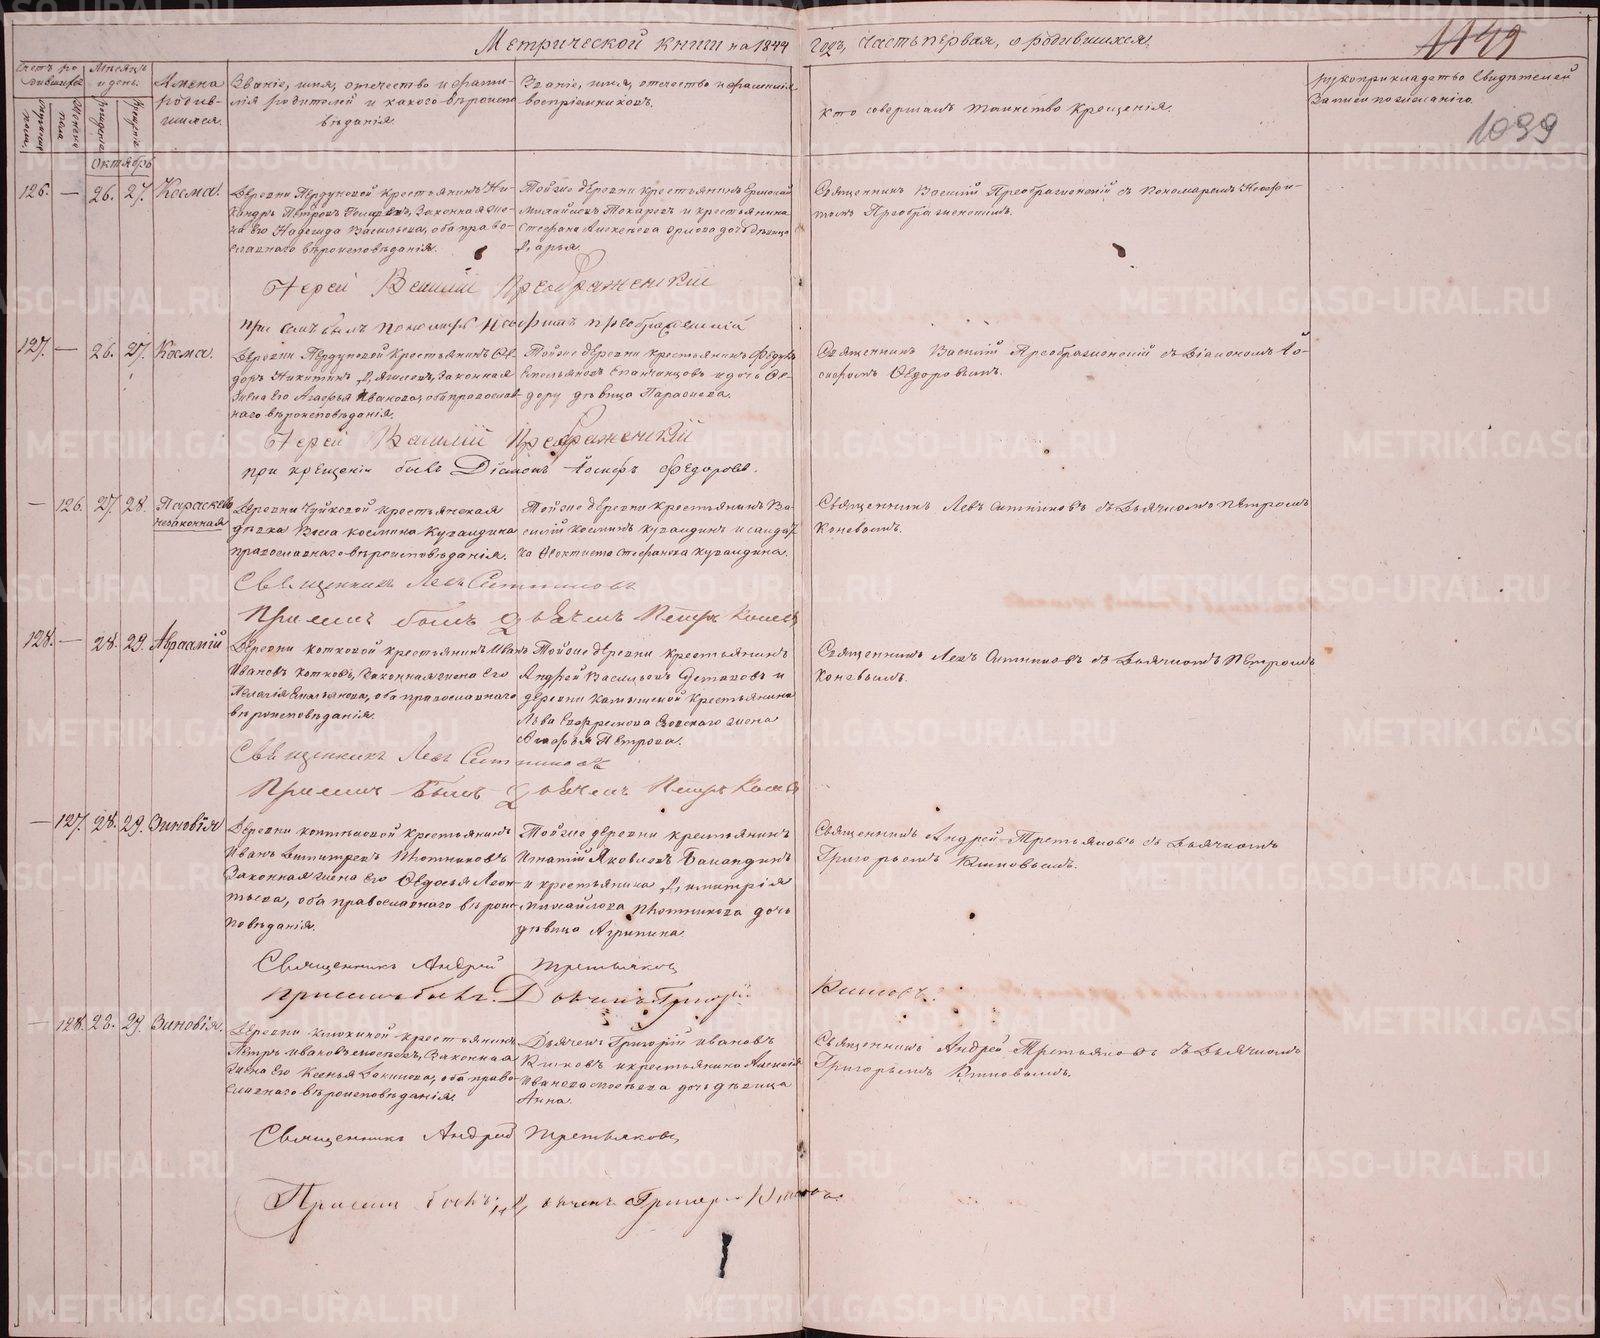 Метрической книги на 1844 годъ, часть первая, о родившихся.
1149
1099
Счетъ родившихся
Мѣсяцъ и день.
Имена родившихся.
Званіе, имя, отечество и фамилія родителей и какого вѣроисповѣданія.
Званіе, имя, отечество и фамилія воспріемниковъ.
Кто совершалъ таинство крещенія.
Рукоприкладство свидѣтелей записи по желанію.
Мужеска пола.
Женска пола
рожденія
крещенія
Октябрь
126. — 26. 27. Косма.
Деревни Пердуновой крестьянинъ Никандръ Петровъ законная жена его Надежда Васильева, оба православнаго вѣроисповѣданія.
Тойже деревни крестьянинъ Ермолай Михайловъ Токаревъ и крестьянина Стефана Алексѣева Орлова дочь дѣвица Дарья.
Священникъ Василій Преображенскій съ пономаремъ Неофитомъ Преображенскимъ.
Іерей Василій Преображенскій
при семъ былъ пономарь Неофитъ Преображенскій
127. — 26. 27. Косма.
Деревни Пердуновой крестьянинъ Ѳедоръ Никитинъ законная жена его Агафья Иванова, оба православнаго вѣроисповѣданія.
Тойже деревни крестьянинъ Федулъ Емельяновъ Епанчинцовъ и дочь Ѳедору дѣвица Параскева.
Священникъ Василій Преображенскій съ діакономъ Іосифомъ Ѳедоровымъ.
Іерей Василій Преображенскій
при крещеніи былъ Діаконъ Іосифъ Федоровъ.
— 126. 27. 28. Параскева незаконная
Деревни Чуйковой крестьянская дѣвка Васса Космина Кугандина православнаго вѣроисповѣданія.
Тойже деревни крестьянинъ Василій Косминъ Кугандинъ и солдатка Ѳеоктиста Стефанова Кугандина.
Священникъ Левъ Ситниковъ съ дьячкомъ Петромъ Коневымъ.
Священникъ Левъ Ситниковъ
При семъ былъ дьячекъ Петръ Коневъ
128. — 28. 29. Авраамій
Деревни Котковой крестьянинъ Иванъ Ивановъ Котковъ, законная жена его Пелагія Емельянова, оба православнаго вѣроисповѣданія.
Тойже деревни крестьянинъ Андрей Васильевъ и деревни Камышской крестьянина Льва Ефремова жена Агафья Петрова.
Священникъ Левъ Ситниковъ съ дьячкомъ Петромъ Коневымъ.
Священникъ Левъ Ситниковъ
При семъ былъ дьячекъ Петръ Коневъ
— 127. 28. 29. Зиновія
Деревни Коптяковой крестьянинъ Иванъ Димитріевъ Плотниковъ законная жена его Ѳедосья Леонтьева, оба православнаго вѣроисповѣданія.
Тойже деревни крестьянинъ Игнатій Яковлевъ Баландинъ и крестьянина Димитрія Михайлова Плотникова дочь дѣвица Агрипина.
Священникъ Андрей Третьяковъ съ дьячкомъ Григорьемъ Климовымъ.
Священникъ Андрей Третьяковъ
При семъ былъ Дьячекъ Григорій Климовъ.
— 128. 28. 29. Зиновія.
Деревни Клюкиной крестьянинъ Петръ Ивановъ законная жена его Ксенья Вакилова, оба православнаго вѣроисповѣданія.
Дьячекъ Григорій Ивановъ Климовъ и крестьянина Алексія Иванова дочь дѣвица Анна.
Священникъ Андрей Третьяковъ съ дьячкомъ Григорьемъ Климовымъ.
Священникъ Андрей Третьяковъ,
При семъ былъ дьячекъ Григорій Климовъ.
METRIKI.GASO-URAL.RU